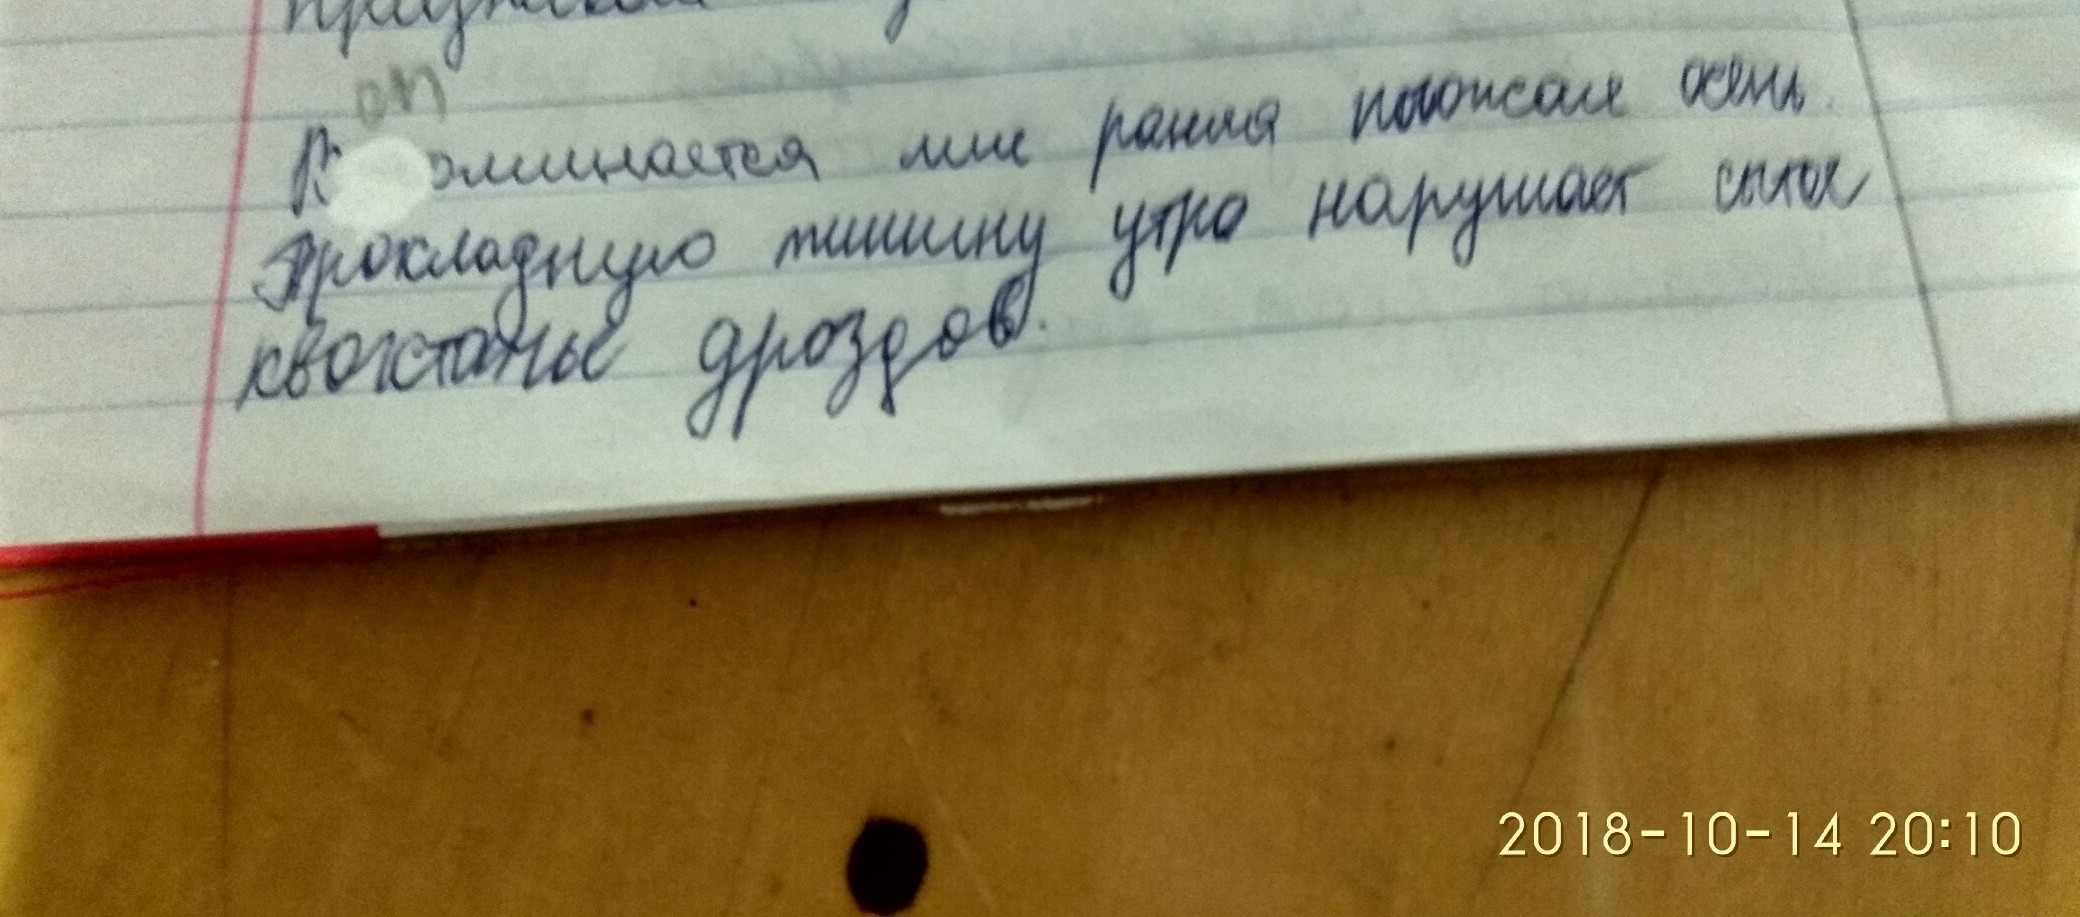 оп
В оминается мне ранняя погожая осень.
Прохладную тишину утро нарушает сытое
квохтанье дроздов.
2018-10-14 20:10